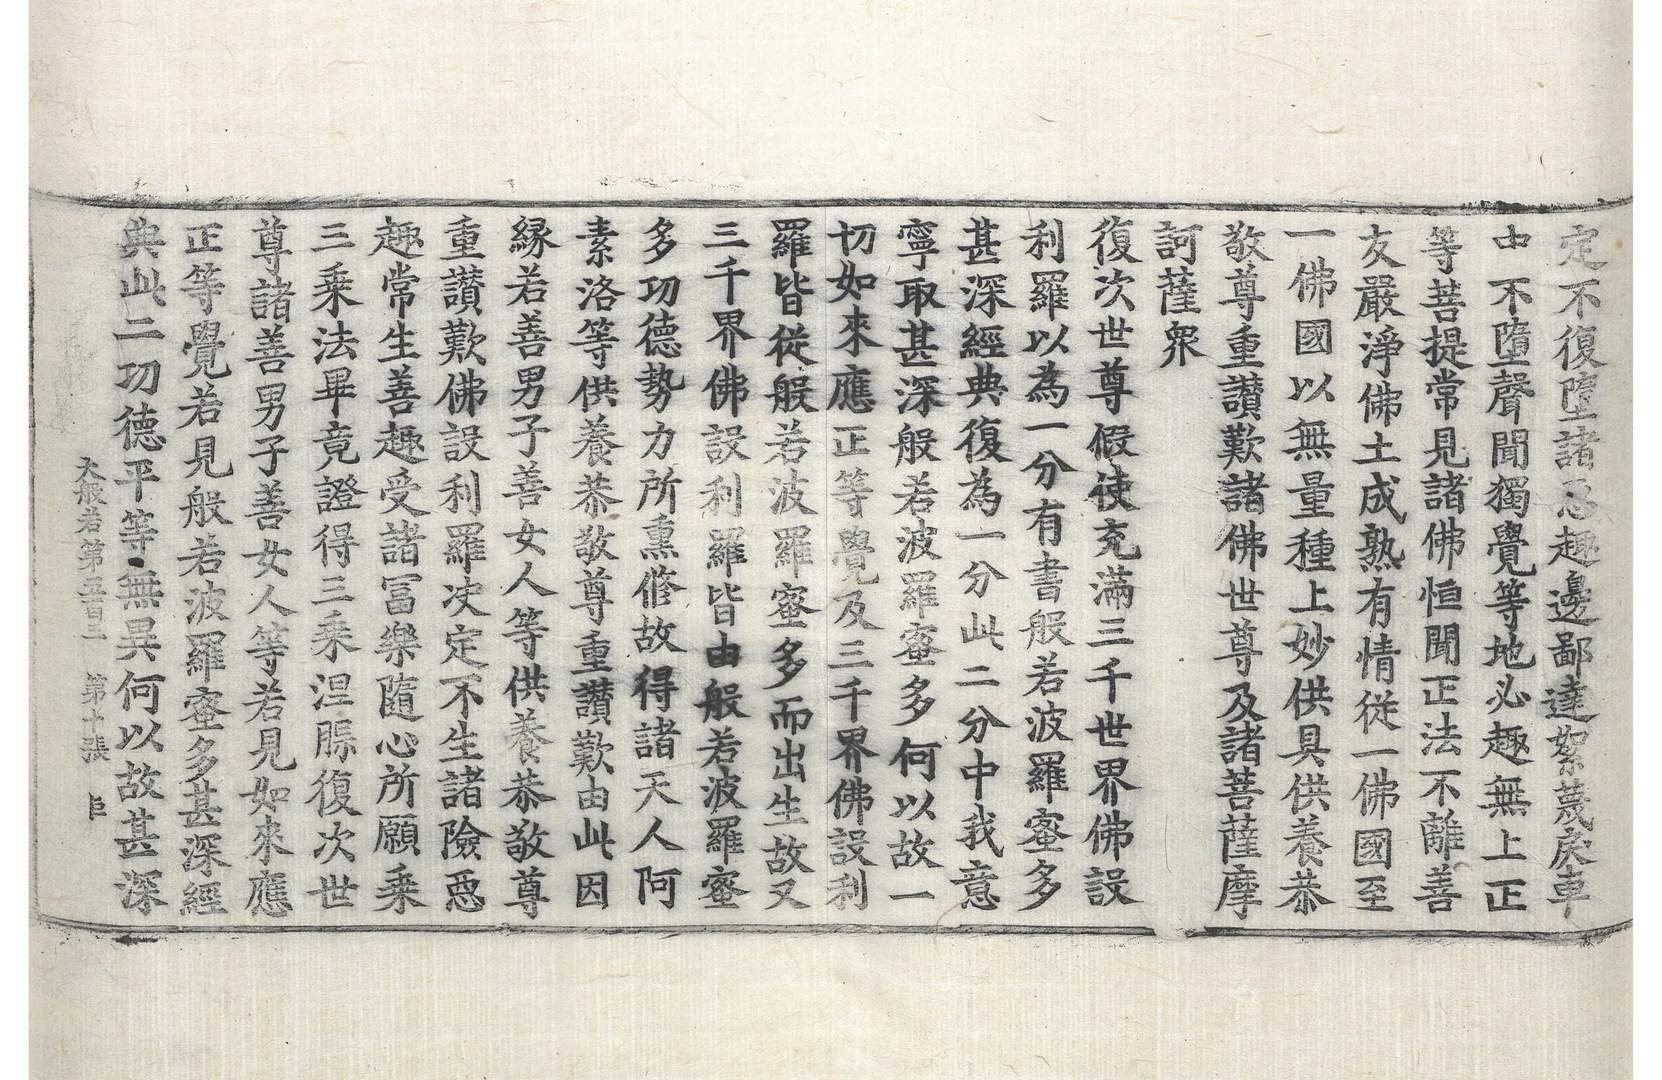 定不復墮諸惡趣邊鄙達絮蔑戾車
中不墮聲聞獨覺等地必趣無上正
等菩提常見諸佛恒聞正法不離善
友嚴淨佛土成熟有情從一佛國至
一佛國以無量種上妙供具供養恭
敬尊重讚歎諸佛世尊及諸菩薩摩
訶薩衆
復次世尊假使充滿三千世界佛設
利羅以為一分有書般若波羅蜜多
甚深經典復為一分此二分中我意
寧取甚深般若波羅蜜多何以故一
切如來應正等覺及三千界佛設利
羅皆從般若波羅蜜多而出生故又
三千界佛設利羅皆由般若波羅蜜
多功德勢力所熏修故得諸天人阿
素洛等供養恭敬尊重讚歎由此因
緣若善男子善女人等供養恭敬尊
重讚歎佛設利羅決定不生諸險惡
趣常生善趣受諸冨樂隨心所願乘
三乘法畢竟證得三乘涅槃復次世
尊諸善男子善女人等若見如來應
正等覺若見般若波羅蜜多甚深經
典此二功德平等無異何以故甚深
大般若第五百三 第十張